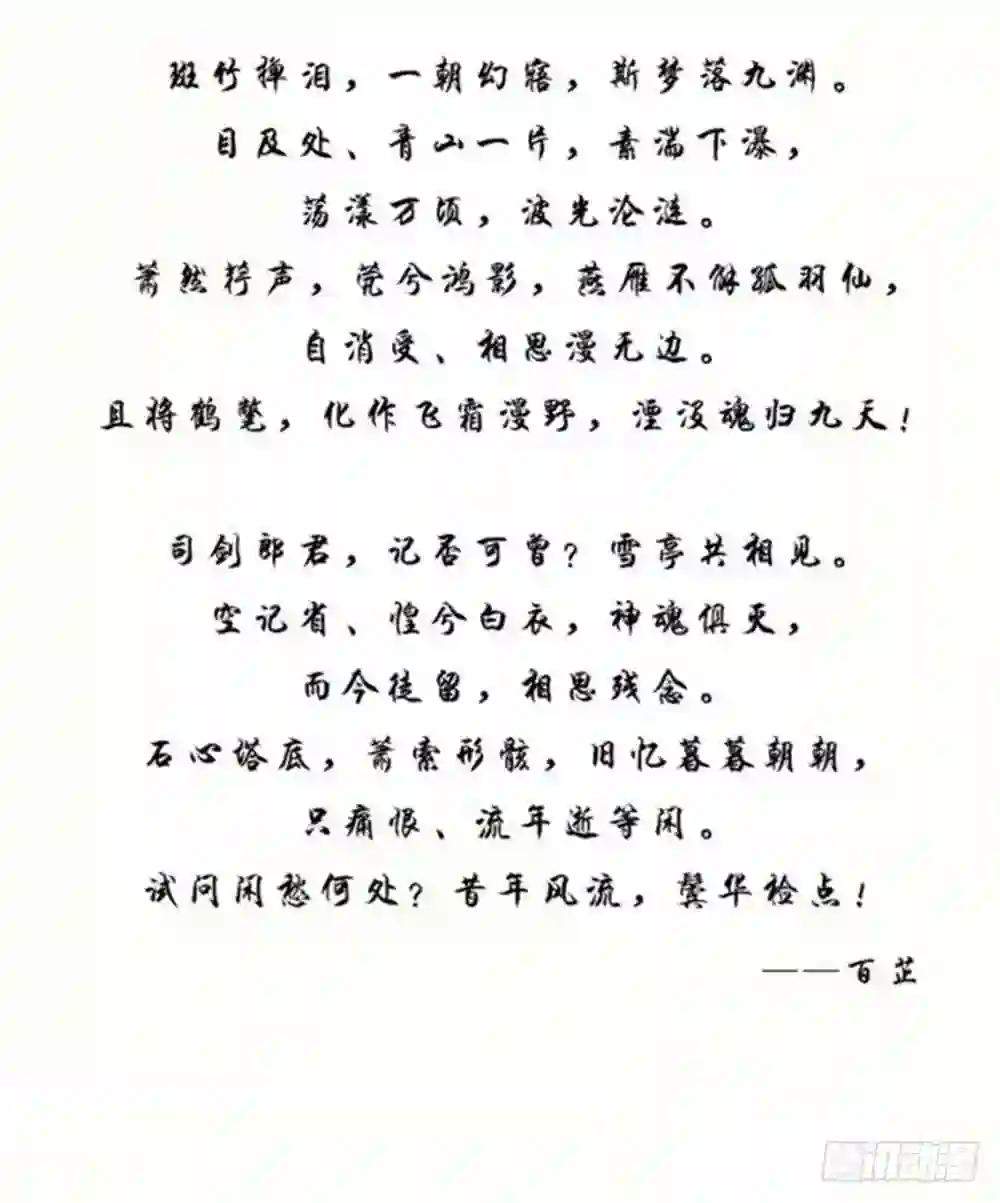 斑竹掸泪，一朝幻寤，斯梦落九渊。
目及处、青山一片，素湍下瀑，
荡漾万顷，波光沦涟。
萧然竚声，茕兮鸿影，燕雁不解孤羽仙，
自消受、相思漫无边。
且将鹤氅，化作飞霜漫野，湮没魂归九天！
司剑郎君，记否可曾？雪亭共相见。
空记省、惶兮白衣，神魂俱灭，
而今徒留，相思残念。
石心塔底，萧索形骸，旧忆暮暮朝朝，
只痛恨、流年逝等闲。
试问闲愁何处？昔年风流，鬓华检点！
——百芷